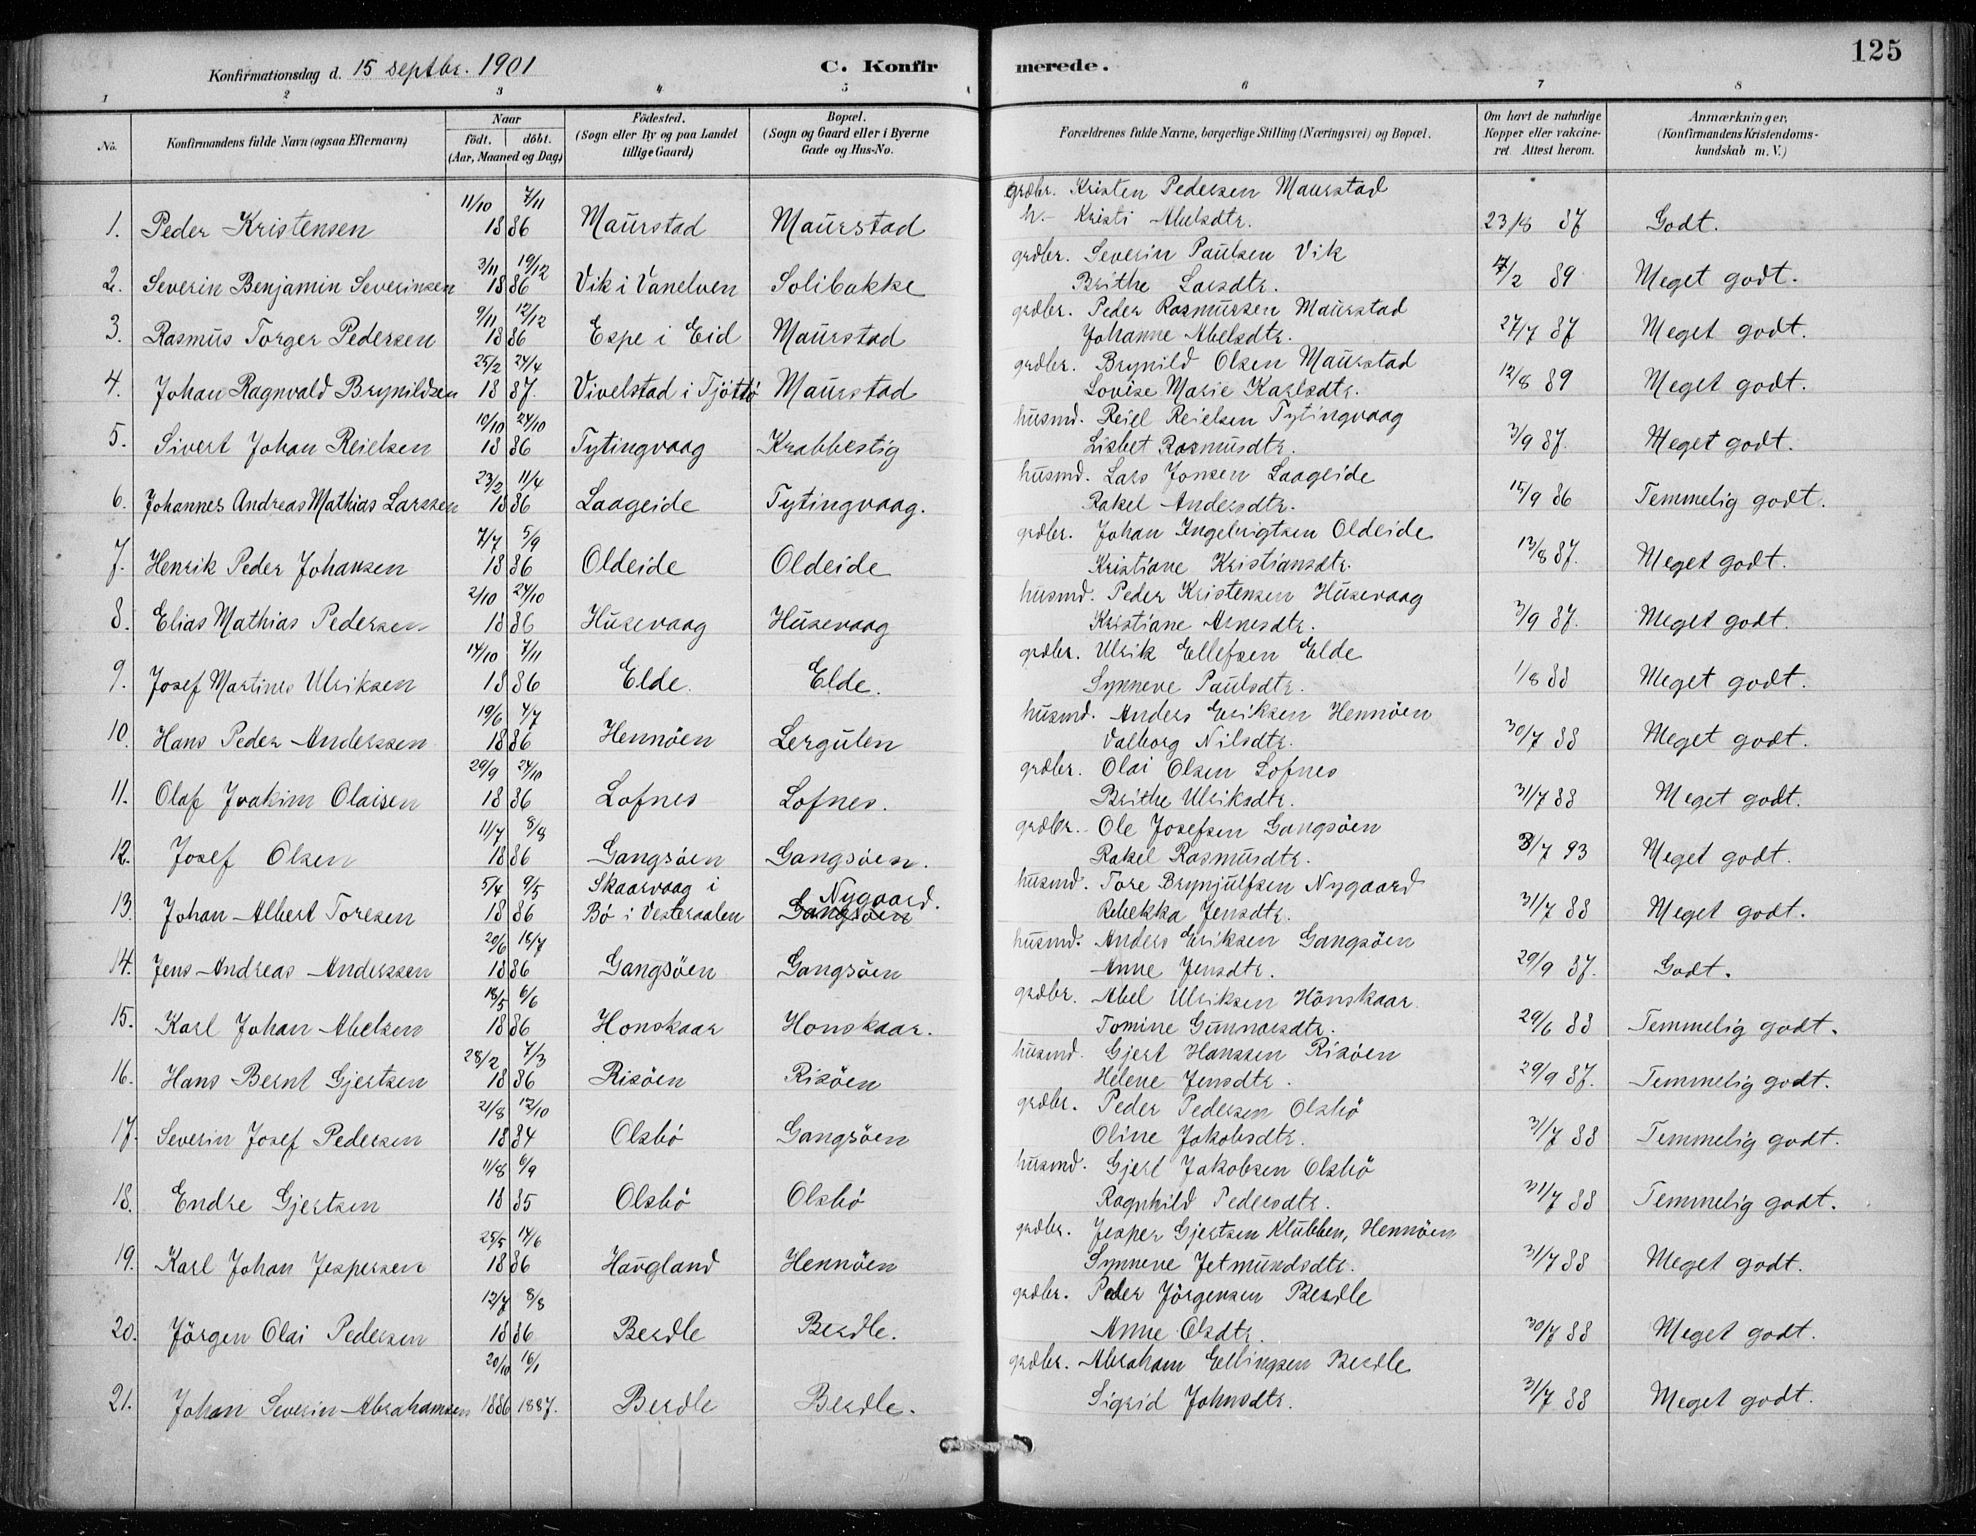 125
Konfirmationsdag d. 15 septbr. 1901 C. Konfirmerede.
1 2 3 4 5 6 7 8
No. Konfirmandens fulde Navn (ogsaa Efternavn) Naar Födt. döbt. (Aar, Maaned og Dag) Födested. (Sogn eller By og paa Landet tillige Gaard) Bopæl. (Sogn og Gaard eller i Byerne Gade og Hus-No. Forældrenes fulde Navne, borgerlige Stilling (Næringsvei) og Bopæl. Om havt de naturlige Kopper eller vakcineret Attest herom. Anmærkninger, (Konfirmandens Kristendomskundskab m. V.)
11/10 7/11 grdbr. Kristen Pedersen Maurstad
1. Peder Kristensen 1886 Maurstad Maurstad h.- Kristi Abelsdtr. 23/8 87 Godt.
3/11 19/12 grdbr. Severin Paulsen Vik
2. Severin Benjamin Severinsen 1886 Vik i Vanelven Solibakke Brithe Larsdtr. 7/2 89 Meget godt.
9/11 12/12 grdbr. Peder Rasmussen Maurstad
3. Rasmus Torger Pedersen 1886 Espe i Eid Maurstad Johanne Abelsdtr. 27/7 87 Meget godt.
25/2 24/4 grdbr. Brynild Olsen Maurstad
4. Johan Ragnvald Brynildsen 1887. Vivelstad i Tjöttö Maurstad Lovise Marie Karlsdtr. 12/8 89 Meget godt.
10/10 24/10 husmd. Reiel Reielsen Tytingvaag
5. Sivert Johan Reielsen 1886 Tytingvaag Krabbestig Lisbet Rasmusdtr. 3/9 87. Meget godt.
23/2 11/4 husmd. Lars Jonsen Laageide
6. Johannes Andreas Mathias Larssen 1886 Laageide Tytingvaag. Rakel Andersdtr. 15/9 86 Temmelig godt.
7/7 5/9 grdbr. Johan Ingebrigtsen Oldeide
7. Henrik Peder Johansen 1886 Oldeide Oldeide Kristiane Kristiansdtr. 13/8 87. Meget godt.
2/10 24/10 husmd. Peder Kristensen Husevaag
8. Elias Mathias Pedersen 1886 Husevaag Husevaag Kristiane Arnesdtr. 3/9 87. Meget godt.
14/10 7/11 grdbr. Ulrik Ellefsen Elde
9. Josef Martines Ulriksen 1886 Elde. Elde. Synneve Paulsdtr. 1/8 88 Meget godt.
19/6 4/7 husmd. Anders Eriksen Hennöen
10. Hans Peder Anderssen 1886 Hennöen Lergulen Valborg Nilsdtr. 30/7 88 Meget godt.
29/9 24/10 grdbr. Olai Olsen Lofnes
11. Olaf Joakim Olaisen 1886 Lofnes Lofnes. Brithe Ulriksdtr. 31/7 88 Meget godt.
11/7 8/8 grdbr. Ole Josefsen Gangsöen
12. Josef Olsen 1886 Gangsöen Gangsöen. Rakel Rasmusdtr. 31/7 93 Meget godt.
5/4 9/5 Skaarvaag i Nygaard. husmd. Tore Brynjulfsen Nygaard
13. Johan Albert Toresen 1886 Bö i Vesteraalen Gangsöen Rebekka Jensdtr. 31/7 88 Meget godt.
20/6 18/7 husmd. Anders Eriksen Gangsöen
14. Jens Andreas Anderssen 1886 Gangsöen Gangsöen Anne Jensdtr. 29/9 87. Godt.
18/5 6/6 grdbr. Abel Ulriksen Hönskaar
15. Karl Johan Abelsen 1886 Honskaar Honskaar. Tomine Gunnarsdtr. 29/6 88 Temmelig godt.
28/2 7/3 husmd. Gjert Hanssen Risöen
16. Hans Bernt Gjertsen 1886 Risöen Risöen Helene Jensdtr. 29/9 87. Temmelig godt.
21/8 12/10 grdbr. Peder Pedersen Olsbö
17. Severin Josef Pedersen 1884 Olsbö Gangsöen Oline Jakobsdtr. 31/7 88 Temmelig godt.
11/8 6/9 husmd. Gjert Jakobsen Olsbö
18. Endre Gjertsen 1885 Olsbö Olsbö Ragnhild Pedersdtr. 31/7 88 Temmelig godt.
25/5 14/6 grdbr. Jesper Gjertsen Klubben, Hennöen
19. Karl Johan Jespersen 1886 Haugland Hennöen Synneve Jetmundsdtr. 31/7 88 Meget godt.
12/7 8/8 grdbr. Peder Jörgensen Berdle
20. Jörgen Olai Pedersen 1886 Berdle Berdle. Anne Olsdtr. 30/7 88 Meget godt.
20/10 16/1 grdbr. Abraham Ellingsen Berdle
21. Johan Severin Abrahamsen 1886 1887. Berdle Berdle. Sigrid Johnsdtr. 31/7 88 Meget godt.